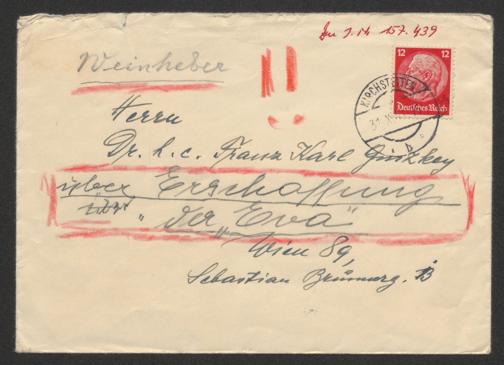 Zu I.N. 157.439
Weinheber
!!
12 12
Deutsches Reich
KIRCHSTETTEN
31. X
b
Herrn
Dr. h. c. Franz Karl Ginzkey
über Erschaffung
über „der „Eva“
Wien 89,
Sebastian Brunnerg.